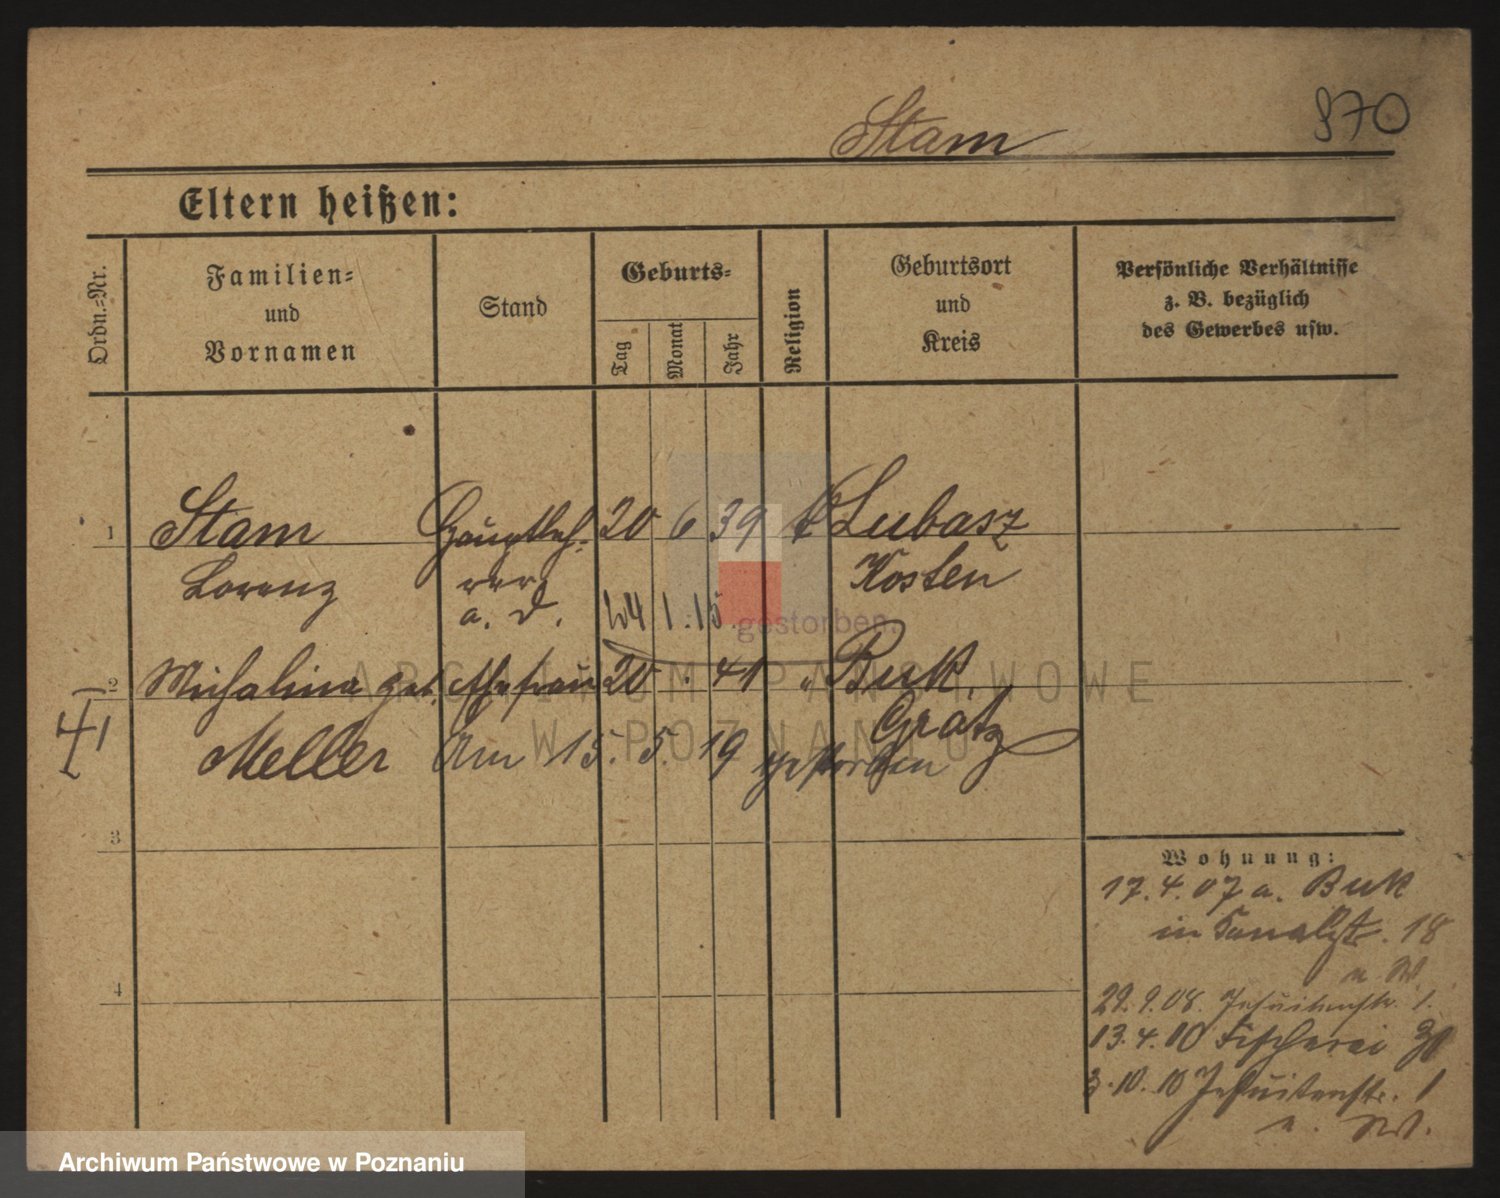 Stam
970
Eltern heißen:
Ordn.-Nr.
Familien-
und
Vornamen
Stand
Geburts-
Tag
Monat
Jahr
Religion
Geburtsort
und
Kreis
Persönliche Verhältnisse
z. B. bezüglich
des Gewerbes usw.
1 Stam Hauptleh- 20 6 39 k Lubasz
Lorenz rer Kosten
a. D. 24 1. 15 gestorben.
2 Michalina geb. Ehefrau 20 . 41 " Buk,
Grätz
Meller Am 15. 5. 19 gestorben
3
4
Wohnung:
17. 4. 07 a. Buk
in Kanalstr. 18
n. W.
29. 9. 08. Jesuitenstr. 1.
13. 4. 10 Fischerei
3. 10. 10 Jesuitenstr. 1
n. W.
ARCHIWUM PAŃSTWOWE
W POZNANIU
Archiwum Państwowe w Poznaniu